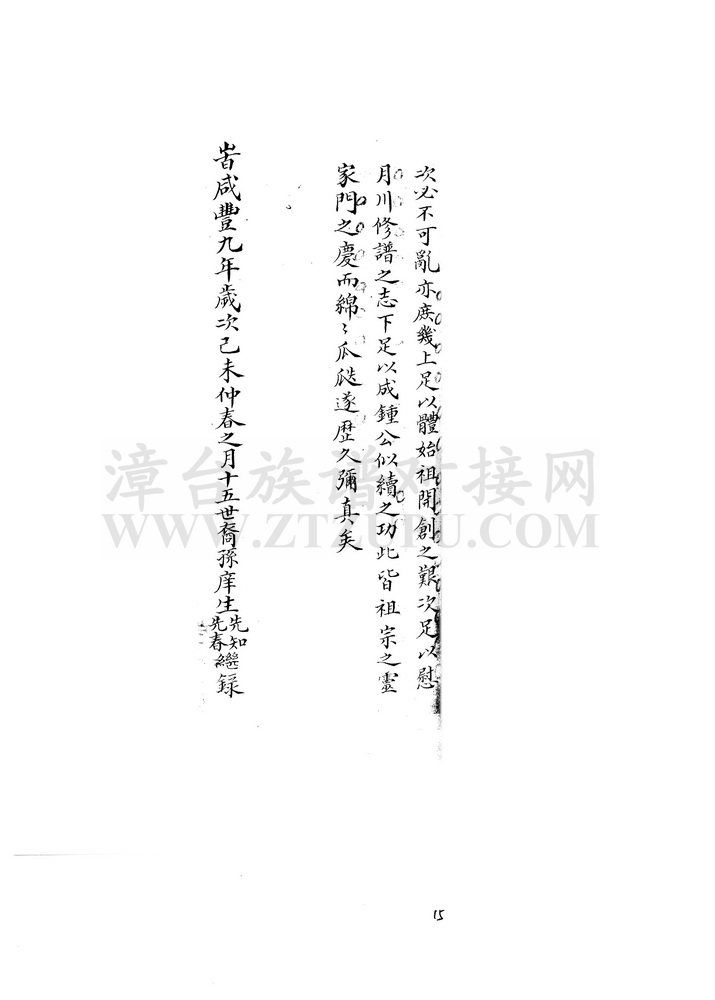 次必不可亂亦庶幾上足以體始祖開創之艱次足以慰
月川修譜之志下足以成鍾公似續之功此皆祖宗之靈
家門之慶而綿〻瓜瓞遂歷久彌真矣
旹咸豐九年歲次己未仲春之月十五世裔孫庠生先知先春繼錄
漳台族谱对接网
WWW.ZTZUPU.COM
15